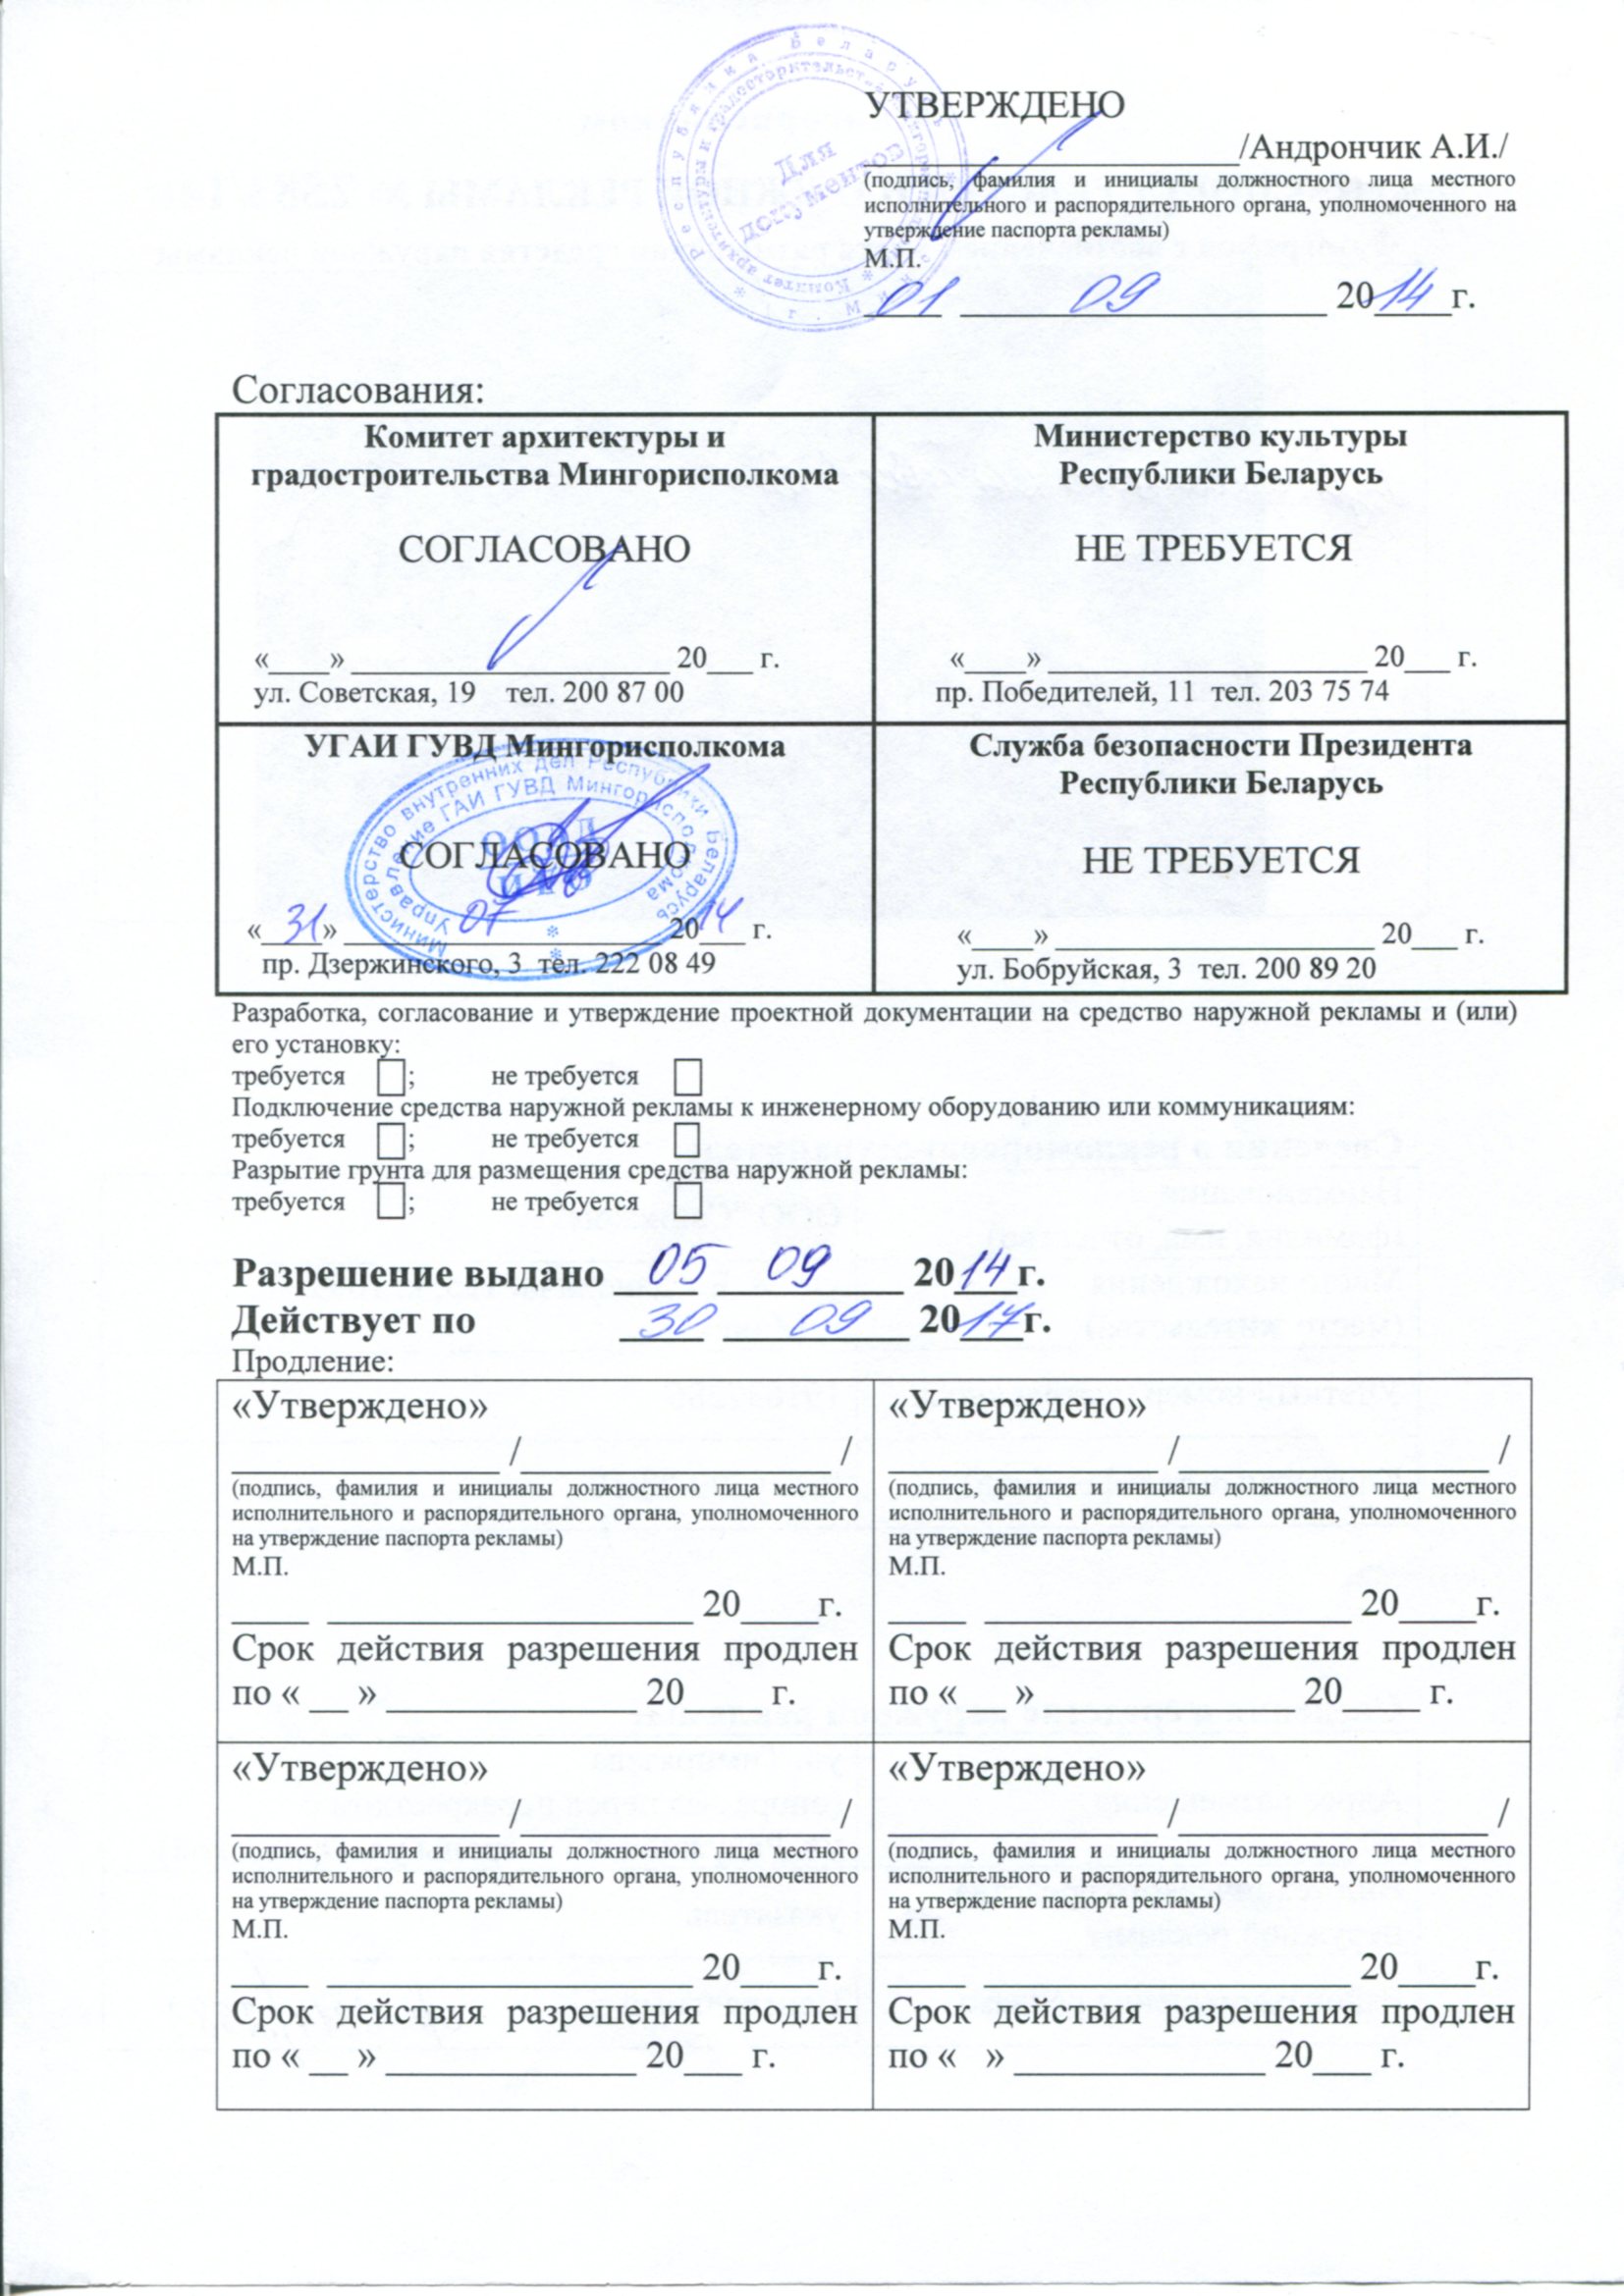 УТВЕРЖДЕНО
____________________/Андрончик А.И./
(подпись, фамилия и инициалы должностного лица местного
исполнительного и распорядительного органа, уполномоченного на
утверждение паспорта рекламы)
М.П.
01 09 2014г.
Республика Беларусь
г. Минск
Комитет архитектуры и градостроительства
Для
документов
Согласования:
Комитет архитектуры и
градостроительства Мингорисполкома
СОГЛАСОВАНО
«____» ____________________ 20___ г.
ул. Советская, 19 тел. 200 87 00
Министерство культуры
Республики Беларусь
НЕ ТРЕБУЕТСЯ
«____» ____________________ 20___ г.
пр. Победителей, 11 тел. 203 75 74
УГАИ ГУВД Мингорисполкома
Министерство внутренних дел Республики Беларусь
Управление ГАИ ГУВД Мингорисполкома
СОГЛАСОВАНО
«31» 07 2014 г.
пр. Дзержинского, 3 тел. 222 08 49
Служба безопасности Президента
Республики Беларусь
НЕ ТРЕБУЕТСЯ
«____» ____________________ 20___ г.
ул. Бобруйская, 3 тел. 200 89 20
Разработка, согласование и утверждение проектной документации на средство наружной рекламы и (или)
его установку:
требуется ; не требуется
Подключение средства наружной рекламы к инженерному оборудованию или коммуникациям:
требуется ; не требуется
Разрытие грунта для размещения средства наружной рекламы:
требуется ; не требуется
Разрешение выдано 05 09 2014г.
Действует по 30 09 2017г.
Продление:
«Утверждено»
______________ /________________ /
(подпись, фамилия и инициалы должностного лица местного
исполнительного и распорядительного органа, уполномоченного
на утверждение паспорта рекламы)
М.П.
____ ___________________ 20____г.
Срок действия разрешения продлен
по « __ » _____________ 20____ г.
«Утверждено»
______________ /________________ /
(подпись, фамилия и инициалы должностного лица местного
исполнительного и распорядительного органа, уполномоченного
на утверждение паспорта рекламы)
М.П.
____ ___________________ 20____г.
Срок действия разрешения продлен
по « __ » _____________ 20____ г.
«Утверждено»
______________ /________________ /
(подпись, фамилия и инициалы должностного лица местного
исполнительного и распорядительного органа, уполномоченного
на утверждение паспорта рекламы)
М.П.
____ ___________________ 20____г.
Срок действия разрешения продлен
по « __ » _____________ 20___ г.
«Утверждено»
______________ /________________ /
(подпись, фамилия и инициалы должностного лица местного
исполнительного и распорядительного органа, уполномоченного
на утверждение паспорта рекламы)
М.П.
____ ___________________ 20____г.
Срок действия разрешения продлен
по « » _____________ 20___ г.